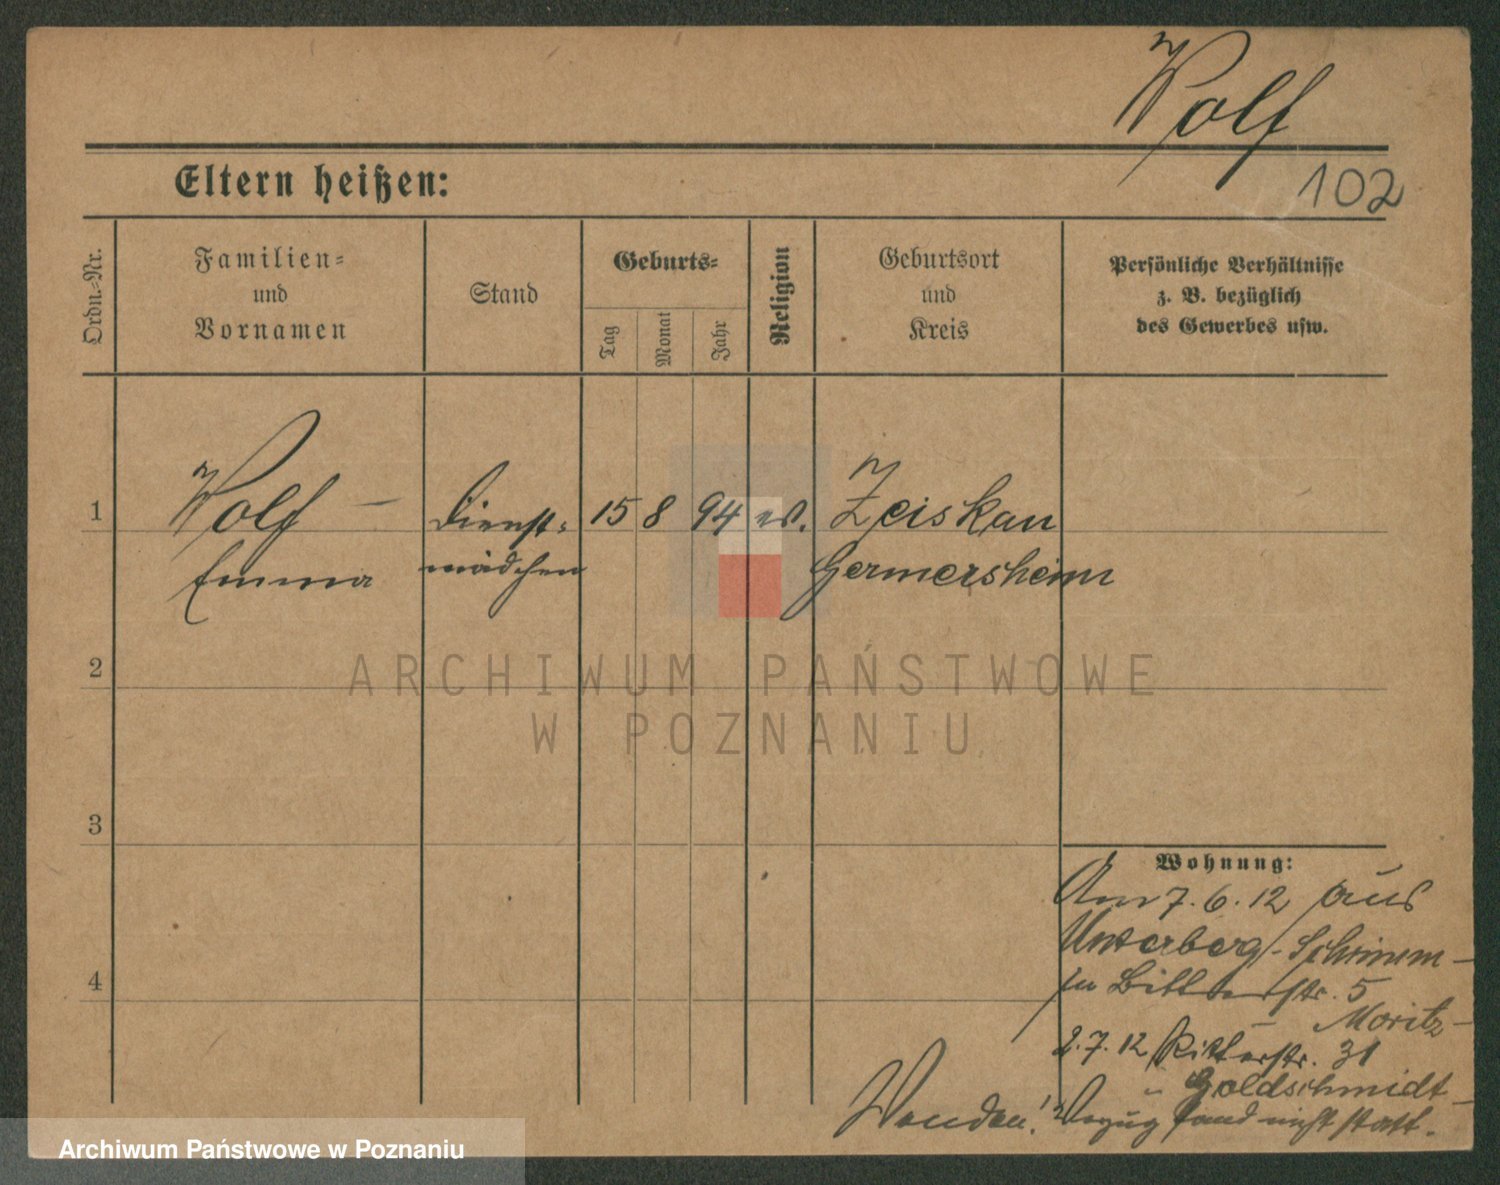 Wolf
102
Eltern heißen:
Ordn.-Nr.
Familien-
und
Vornamen
Stand
Geburts-
Tag
Monat
Jahr
Religion
Geburtsort
und
Kreis
Persönliche Verhältnisse
z. B. bezüglich
des Gewerbes usw.
1
Wolf - Dienst- 15 8 94 ev. Zeiskau
Emma mädchen Germersheim
2
ARCHIWUM PAŃSTWOWE
W POZNANIU
3
4
Wohnung:
Am 7.6.12 aus
Unterberg-Schrimm-
5
Moritz-
2.7.12 Ritterstr. 31
" Goldschmidt-
Wenden! Verzug fand nicht statt.
Archiwum Państwowe w Poznaniu